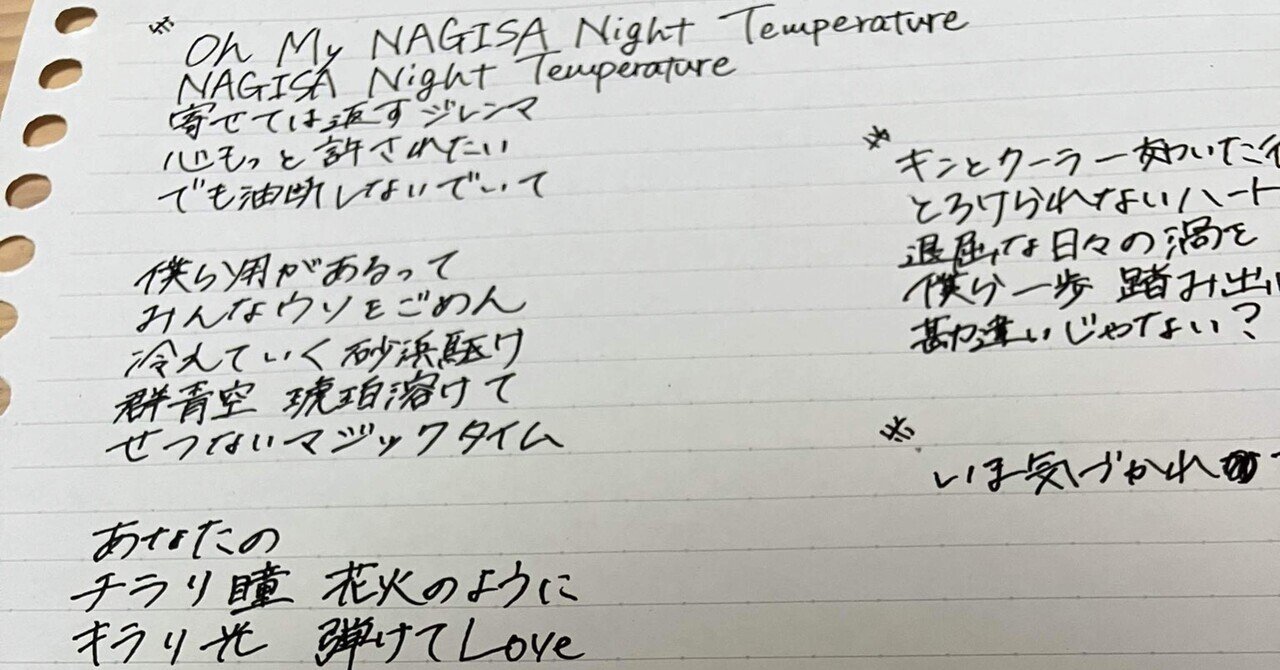 ※ Oh My NAGISA Night Temperature
NAGISA Night Temperature
寄せては返すジレンマ
心もっと許されたい
でも油断しないでいて
僕ら用があるって
みんなウソをごめん
冷えていく砂浜駆け
群青空 琥珀溶けて
せつないマジックタイム
あなたの
チラリ瞳 花火のように
キラリ光 弾けてLove
※ キンとクーラー効いた
とろけられないハート
退屈な日々の渦を
僕ら一歩 踏み出
勘違いじゃない?
※
いま気づかれ